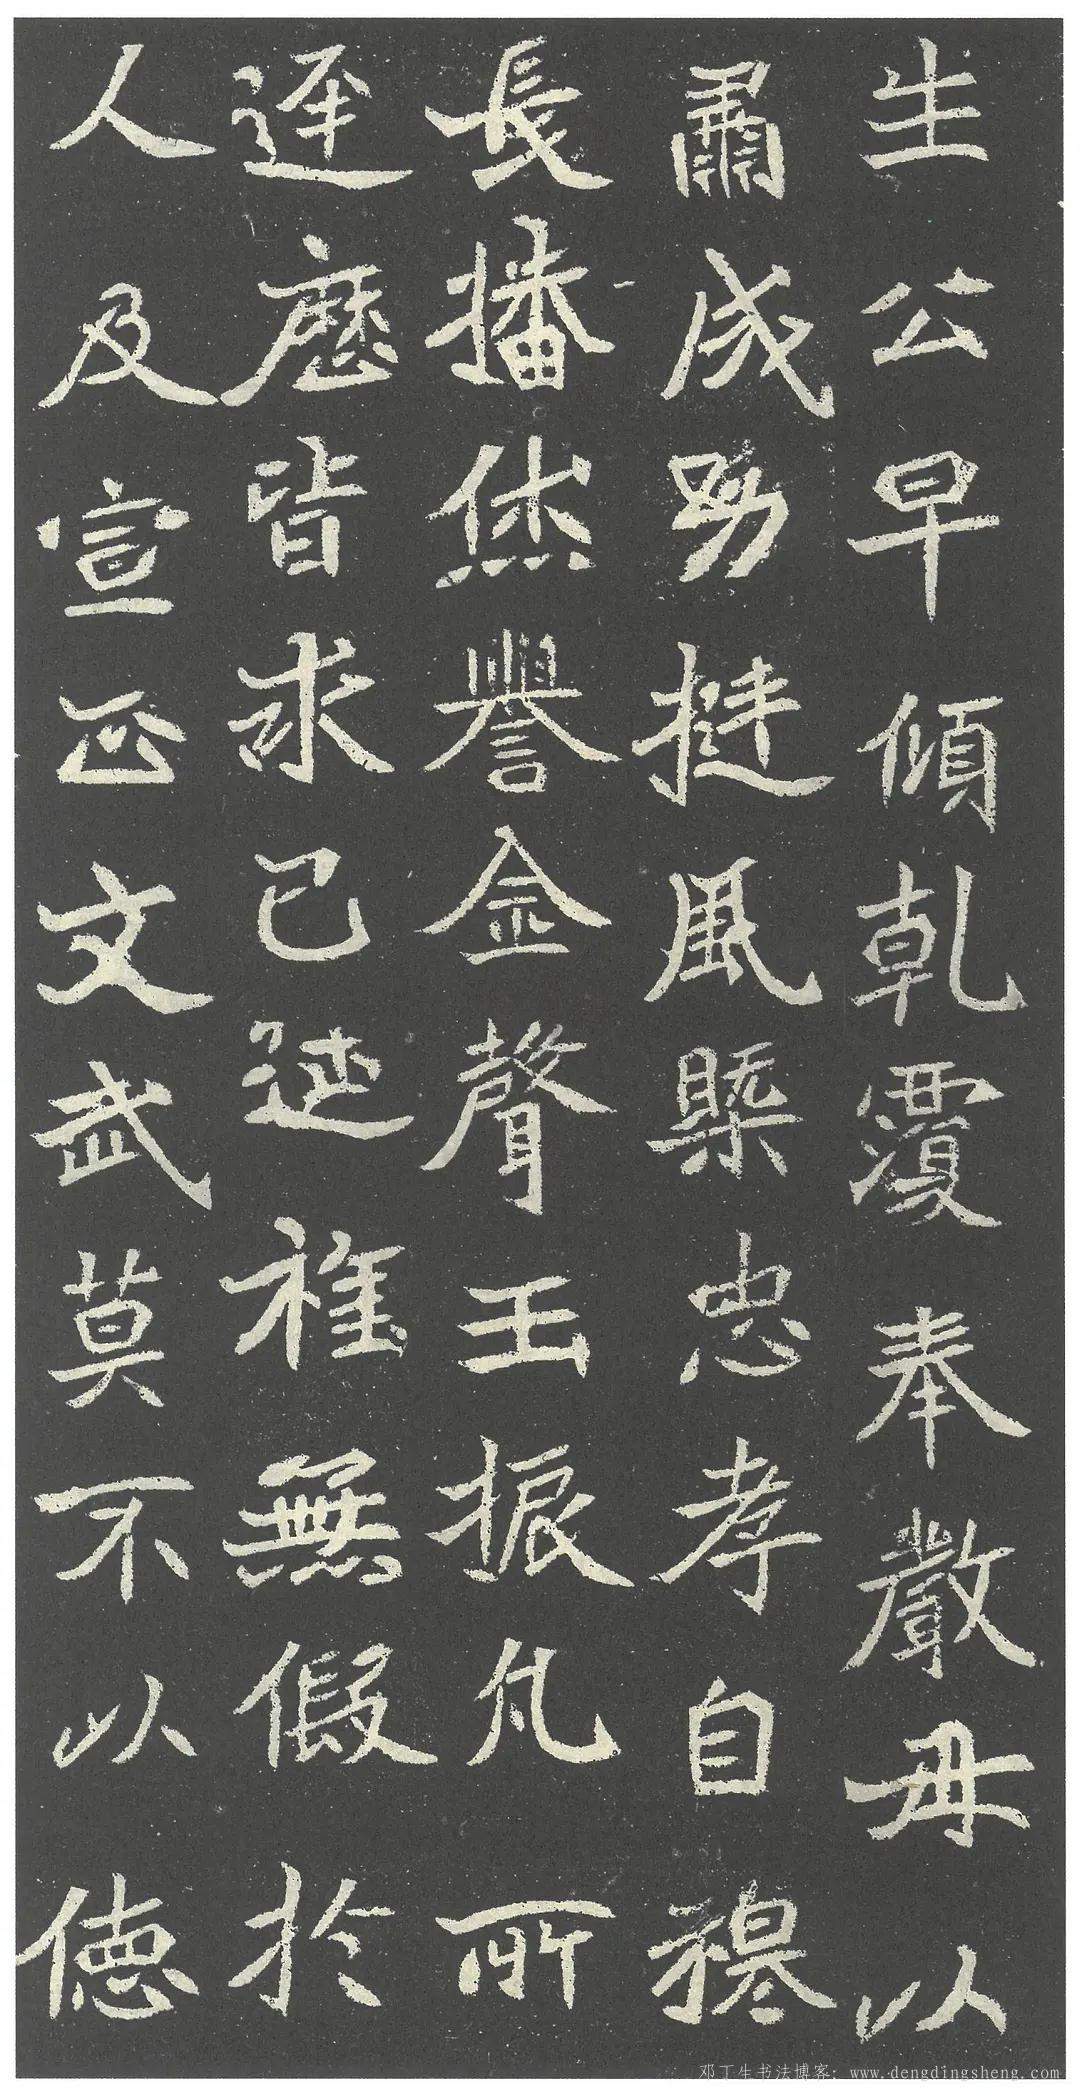 生公早傾乾覆奉嚴母以
肅成幼挺風槩忠孝自穆
長播休譽金聲玉振凡所
逕歷皆求己無假於
人及宣正文武莫不以德
邓丁生书法博客：www.dengdingsheng.com